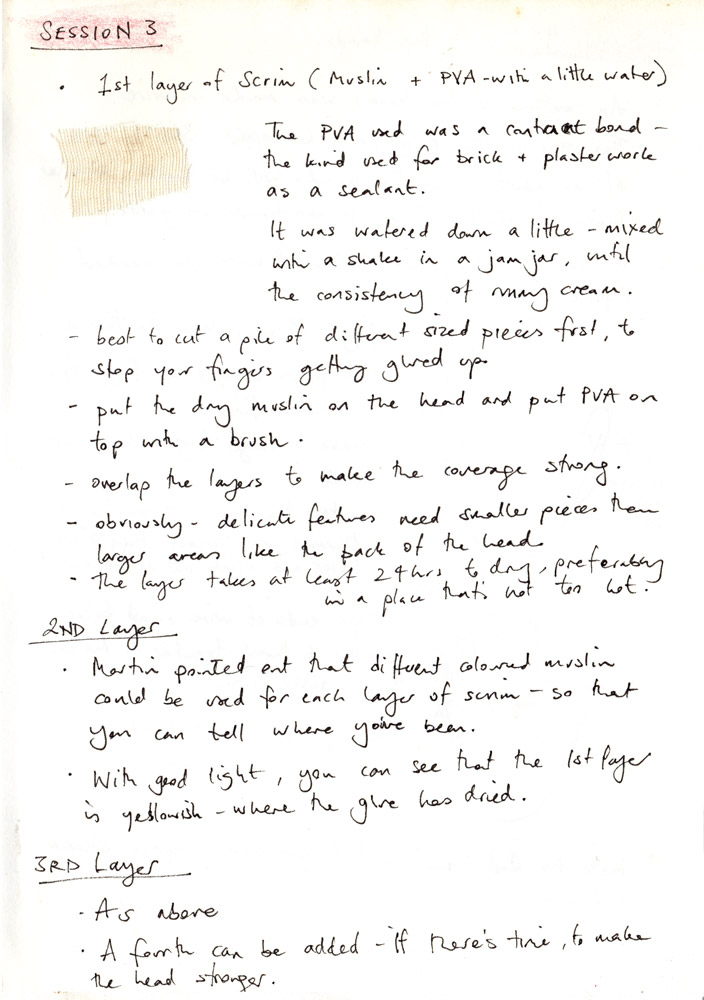 SESSION 3
· 1st layer of Scrim (Muslin + PVA - with a little water)
The PVA used was a contract bond -
the kind used for brick + plaster work
as a sealant.
It was watered down a little - mixed
with a shake in a jam jar, until
the consistency of runny cream.
- best to cut a pile of different sized pieces first, to
stop your fingers getting glued up.
- put the dry muslin on the head and put PVA on
top with a brush.
- overlap the layers to make the coverage strong.
- obviously - delicate features need smaller pieces than
larger areas like the back of the head.
· The layer takes at least 24hrs to dry, preferably
in a place that's not too hot.
2ND Layer
· Martin pointed out that different coloured muslin
could be used for each layer of scrim - so that
you can tell where you've been.
· With good light, you can see that the 1st layer
is yellowish - where the glue has dried.
3RD Layer
· As above
· A fourth can be added - if there's time, to make
the head stronger.